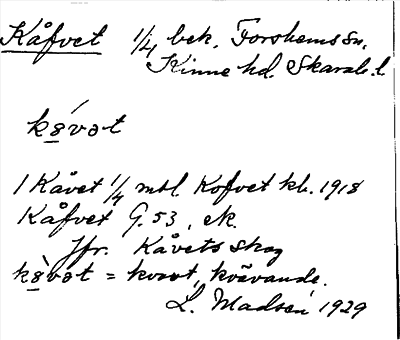 Kåfvet 1/4 bek. Forshems sn.
Kinne hd. Skarab. l
kǝ́vǝt
1 Kåvet 1/4 mtl. Kofvet kb. 1918
Kåfvet G. 53, ek.
Jfr. Kåvets skog
= kvävande.
L. Madsén 1929